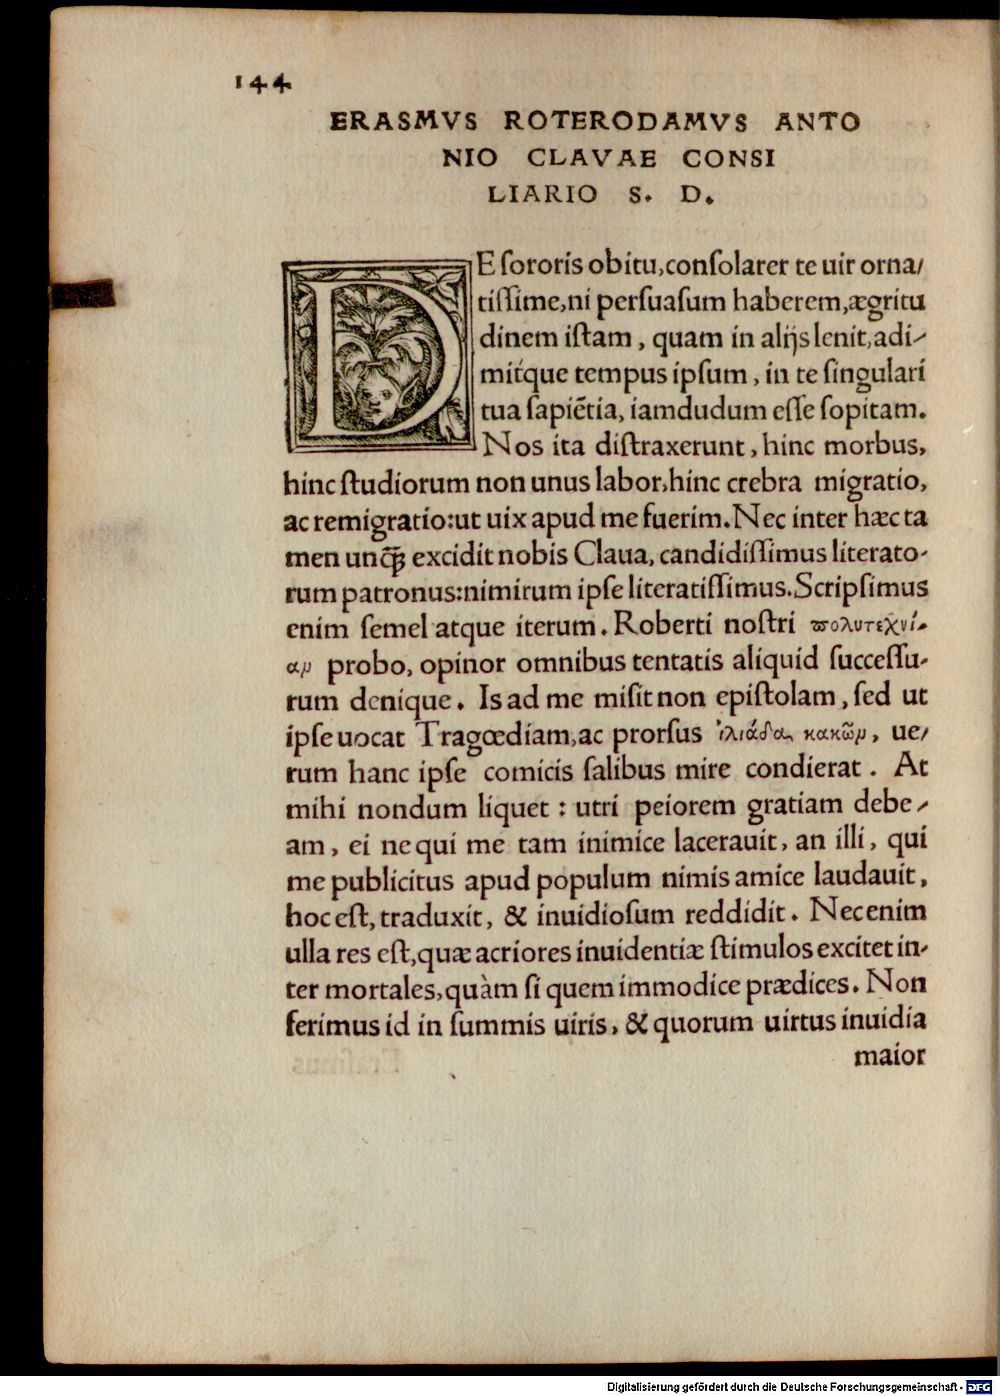 144
ERASMVS ROTERODAMVS ANTO
NIO CLAVAE CONSI
LIARIO S. D.
DE ſororis obitu,conſolarer te uir orna/
tiſſime,ni perſuaſum haberem,ægritu
dinem iſtam, quam in alijs lenit,adi-
mitque tempus ipſum, in te ſingulari
tua ſapiẽtia, iamdudum eſſe ſopitam.
Nos ita diſtraxerunt, hinc morbus,
hinc ſtudiorum non unus labor,hinc crebra migratio,
ac remigratio:ut uix apud me fuerim. Nec inter hæc ta
men unq̃ꝫ excidit nobis Claua, candidiſſimus literato-
rum patronus:nimirum ipſe literatiſſimus.Scripſimus
enim ſemel atque iterum. Roberti noſtri πολυτεχνί-
αν probo, opinor omnibus tentatis aliquid ſucceſſu-
rum denique. Is ad me miſit non epiſtolam, ſed ut
ipſe uocat Tragœdiam,ac prorſus ἰλιάδα κακῶν, ue/
rum hanc ipſe comicis ſalibus mire condierat. At
mihi nondum liquet: utri peiorem gratiam debe-
am, ei ne qui me tam inimice lacerauit, an illi, qui
me publicitus apud populum nimis amice laudauit,
hoc eſt, traduxit, & inuidioſum reddidit. Nec enim
ulla res eſt,quæ acriores inuidentiæ ſtimulos excitet in-
ter mortales,quàm ſi quem immodice prædices. Non
ferimus id in ſummis uiris, & quorum uirtus inuidia
maior
Digitalisierung gefördert durch die Deutsche Forschungsgemeinschaft - DFG